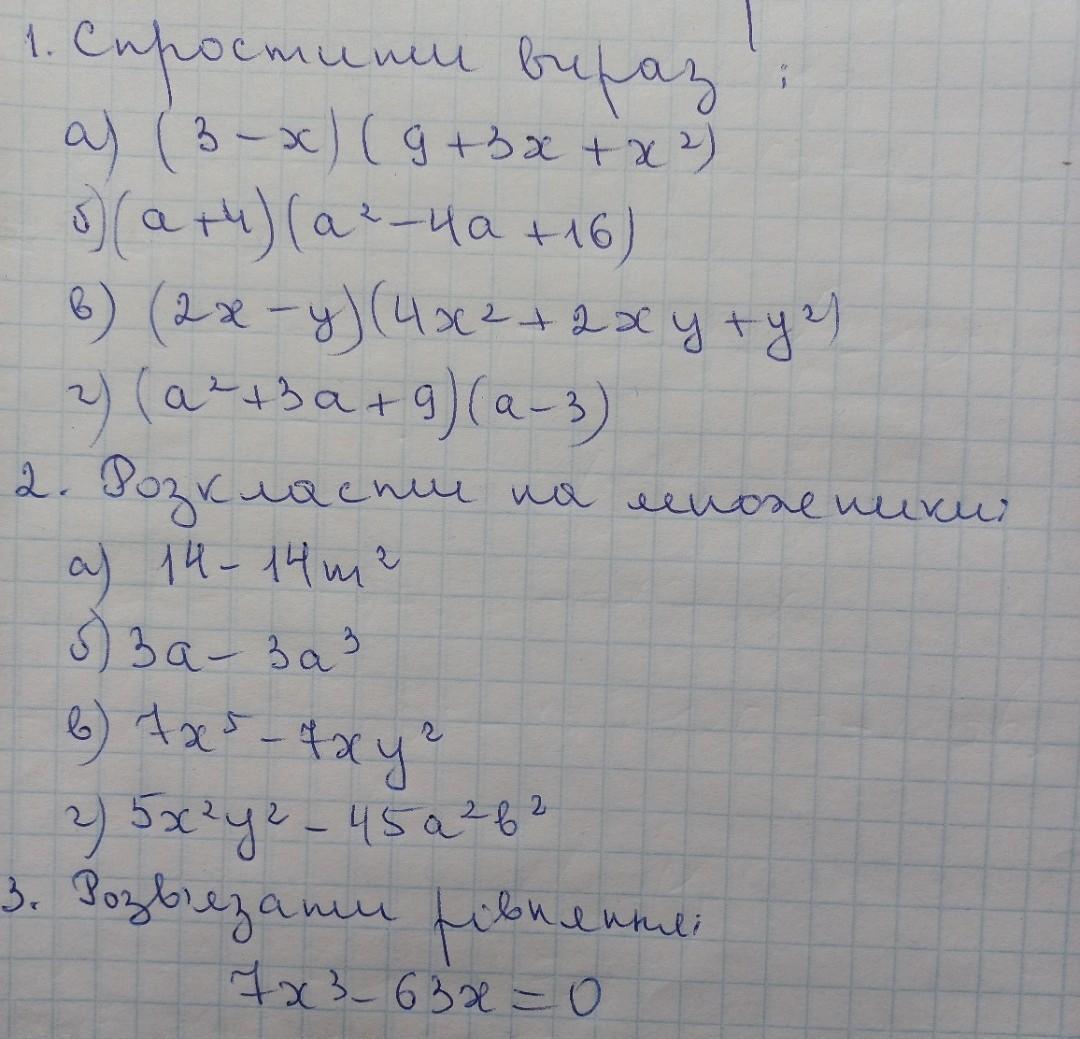 1. Спростити вираз :
а) (3 - x)(9 + 3x + x²)
б) (a + 4)(a² - 4a + 16)
в) (2x - y)(4x² + 2xy + y²)
г) (a² + 3a + 9)(a - 3)
2. Розкласти на множники:
а) 14 - 14m²
б) 3a - 3a³
в) 7x⁵ - 7xy²
г) 5x²y² - 45a²b²
3. Розв'язати рівняння:
7x³ - 63x = 0